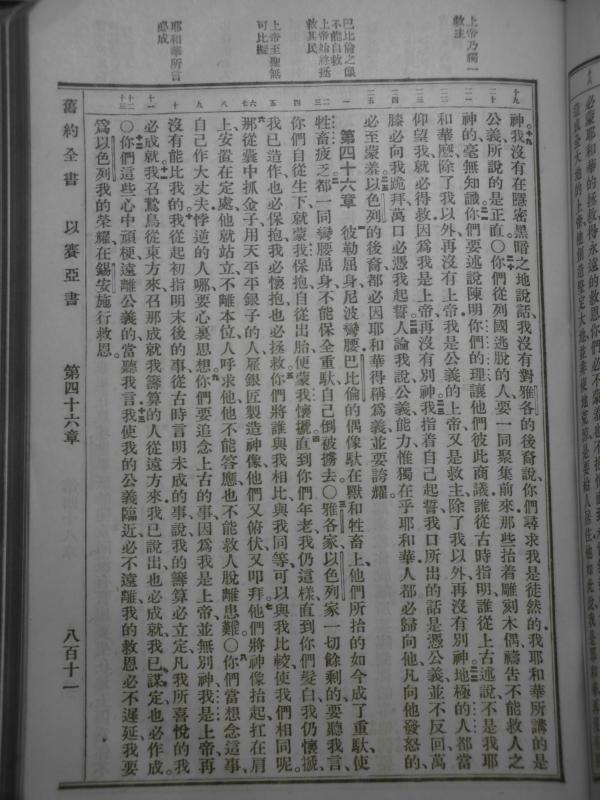 上帝乃獨一
救主
巴比倫之像
不能自救
上帝始終拯
救其民
上帝至聖無
可比擬
耶和華所言
必成
十九 神我沒有在隱密黑暗之地說話我沒有對雅各的後裔說你們尋求我是徒然的我耶和華所講的是
二十 公義所說的是正直〇你們從列國逃脫的人要一同聚集前來那些抬着雕刻木偶禱告不能救人之
二一 神的毫無知識你們要述說陳明你們的理讓他們彼此商議誰從古時指明誰從上古述說不是我耶
二二 和華麼除了我以外再沒有上帝我是公義的上帝又是救主除了我以外再沒有別神地極的人都當
二三 仰望我就必得救因爲我是上帝再沒有別神我指着自己起誓我口所出的話是憑公義並不反回萬
二四 膝必向我跪拜萬口必憑我起誓人論我說公義能力惟獨在乎耶和華人都必歸向他凡向他發怒的
二五 必至蒙羞以色列的後裔都必因耶和華得稱爲義並要誇耀
第四十六章
一 彼勒屈身尼波彎腰巴比倫的偶像馱在獸和牲畜上他們所抬的如今成了重馱使
二 三 牲畜疲乏都一同彎腰屈身不能保全重馱自己倒被擄去〇雅各家以色列家一切餘剩的要聽我言
四 你們自從生下就蒙我保抱自從出胎便蒙我懷搋直到你們年老我仍這樣直到你們髮白我仍懷搋
五 我已造作也必保抱我必懷抱也必拯救你們將誰與我相比與我同等可以與我比較使我們相同呢
六 七 那從囊中抓金子用天平平銀子的人雇銀匠製造神像他們又俯伏又叩拜他們將神像抬起扛在肩
八 上安置在定處他就站立不離本位人呼求他他不能答應也不能救人脫離患難〇你們當想念這事
九 自己作大丈夫悖逆的人哪要心裏思想你們要追念上古的事因爲我是上帝並無別神我是上帝再
十 沒有能比我的我從起初指明末後的事從古時言明未成的事說我的籌算必立定凡我所喜悅的我
十一 必成就我召鷙鳥從東方來召那成就我籌算的人從遠方來我已說出也必成就我已謀定也必作成
十二 十三 〇你們這些心中頑梗遠離公義的當聽我言我使我的公義臨近必不遠離我的救恩必不遲延我要
爲以色列我的榮耀在錫安施行救恩
舊約全書 以賽亞書 第四十六章 八百十一